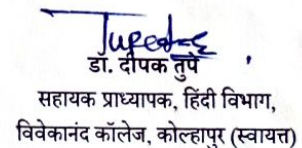 डॉ. दीपक तुपे
सहायक प्राध्यापक, हिंदी विभाग,
विवेकानंद कॉलेज, कोल्हापुर (स्वायत्त)